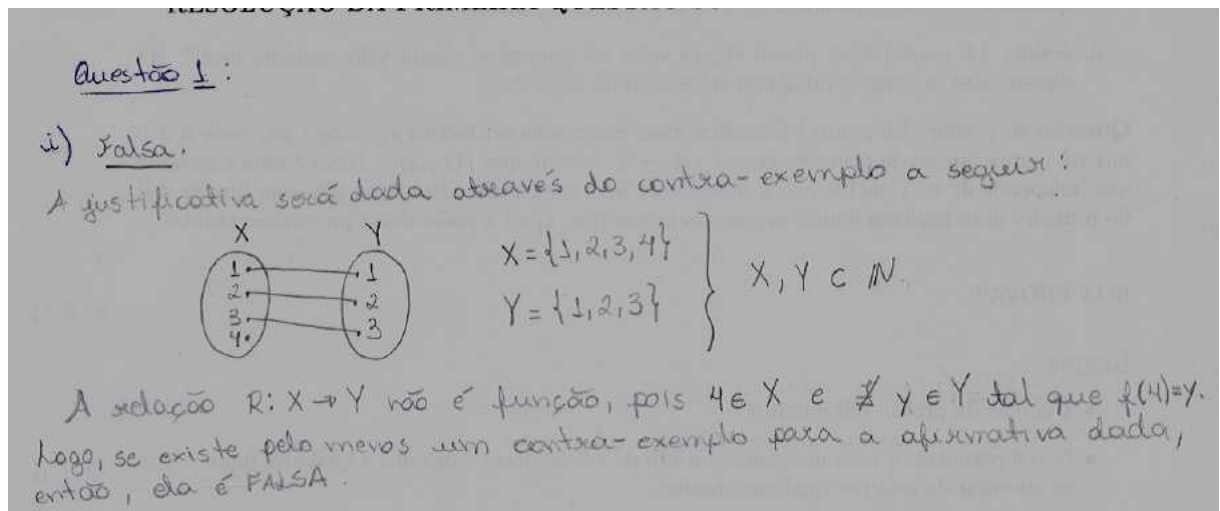 Questão 1.
i) Falsa.
A justificativa será dada através do contra-exemplo a seguir:
X Y
1 1
2 2
3 3
4
X = {1,2,3,4}
Y = {1,2,3}
X, Y ⊂ ℕ.
A relação R: X → Y não é função, pois 4 ∈ X e ∄ y ∈ Y tal que f(4)=y.
Logo, se existe pelo menos um contra-exemplo para a afirmativa dada,
então, ela é FALSA.